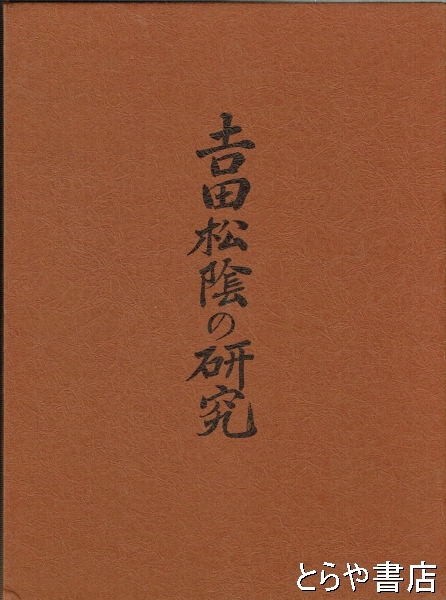 吉田松陰の研究
とらや書店